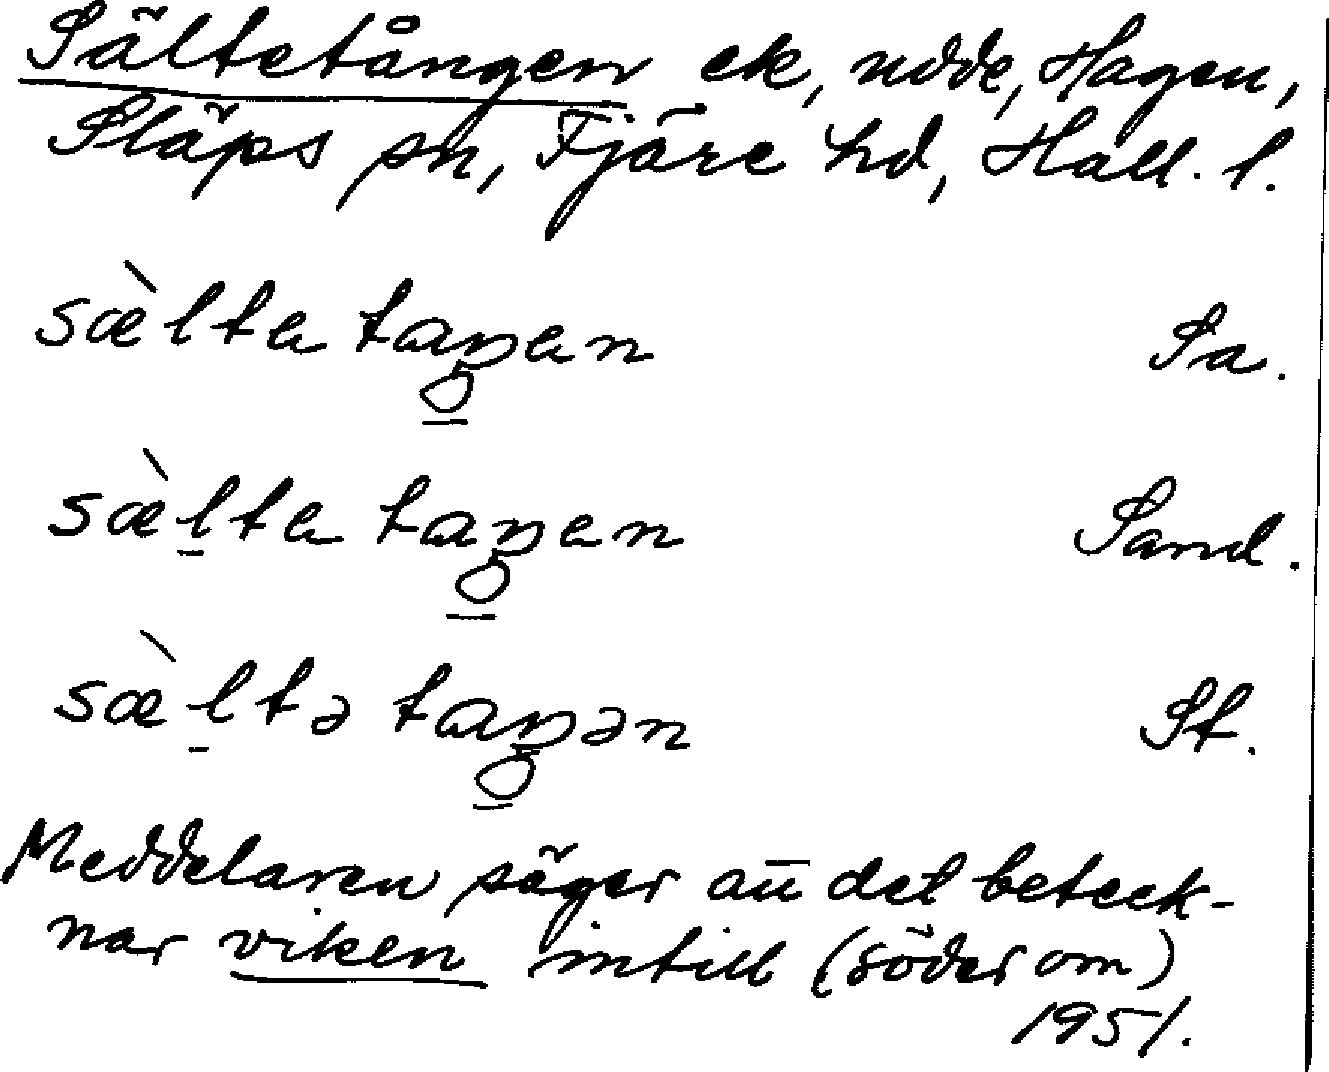 Sältetången ek, udde, Hagen,
Släps sn, Fjäre hd, Hall. l.
sæ̀lta taŋan Sa.
sæ̀lta taŋan Sand.
sæ̀ltə taŋən St.
Meddelaren säger att det beteck-
nar viken intill (söder om)
1951.